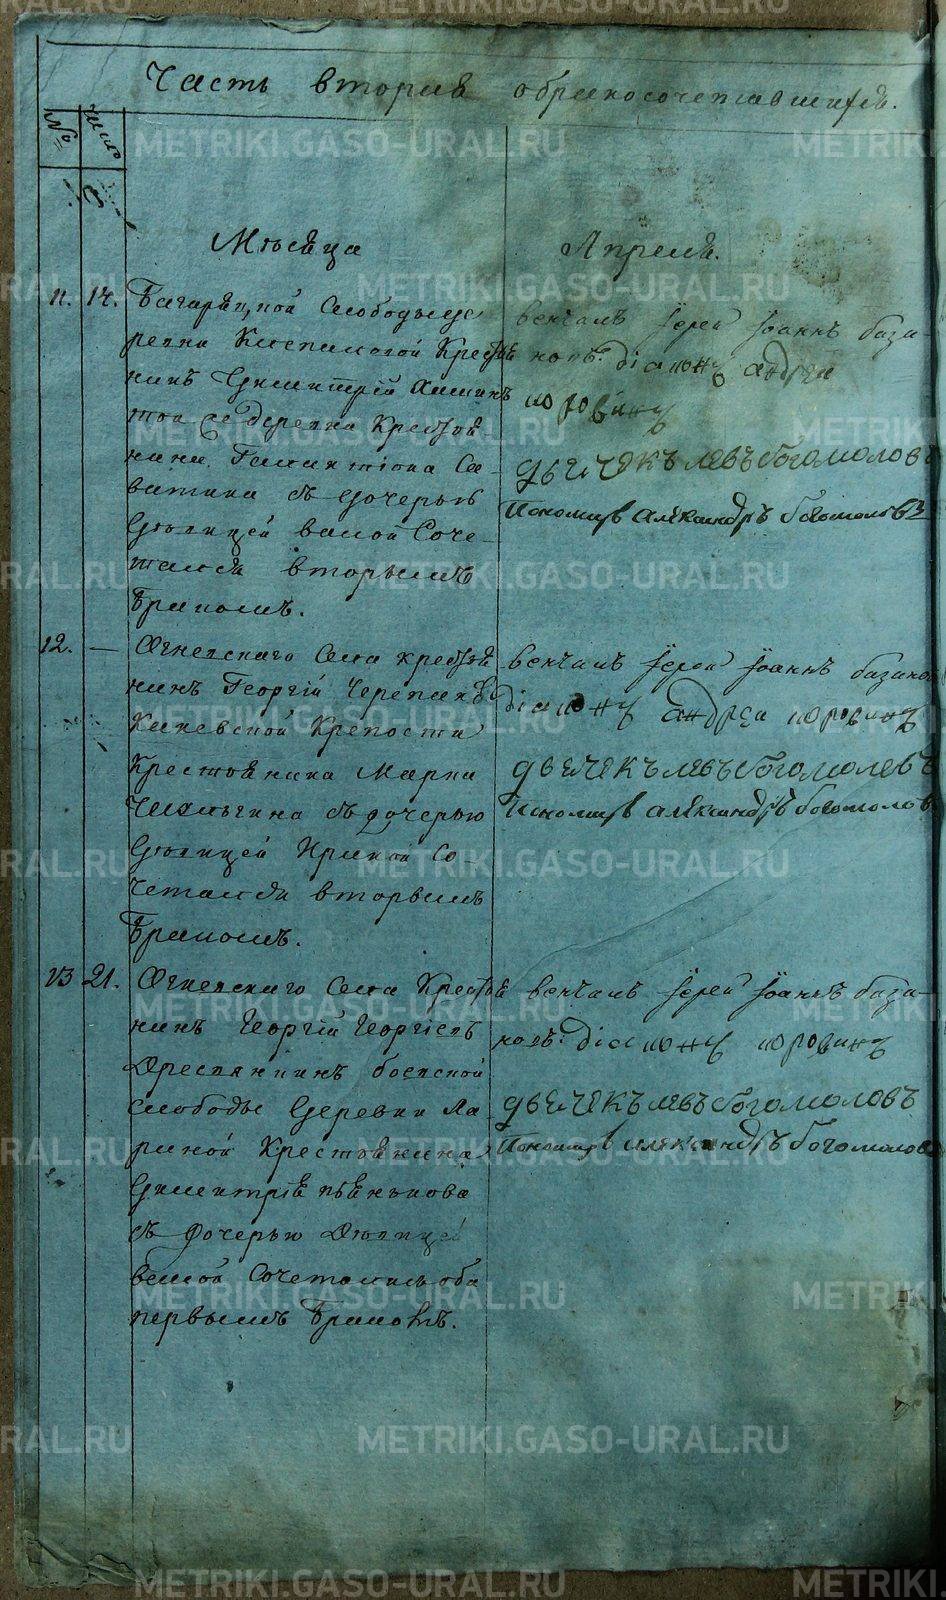 Часть вторая обракосочетавшихся.
№ число
Месяца Апреля.
11. 14. Багаряцкой Слободы де
ревни Кресть
нинъ Димитрий
той же деревни Крестья
нина Галактиона Са
ватина съ дочерью
девицей Соче
тался вторымъ
Бракомъ.
венчалъ Iерей Iоаннъ бази
новъ: дiаконъ андрей
поровинъ
дьячекъ левъ богомоловъ
Пономарь александръ богомоловъ
12. — Огневскаго Села крестья
нинъ Георгiй Черепан
Крепости
Крестьянина Марка
съ дочерью
девицей Ириной Со
четался вторымъ
Бракомъ.
венчалъ Iерей Iоаннъ базинов
дiаконъ андрей поровинъ
дьячекъ левъ богомоловъ
Пономарь александръ богомолов
13 21. Огневскаго Села Крестья
нинъ Георгiй Георгiевъ
Дресвянкинъ боевской
слободы Деревни Ла
риной Крестьянина
Димитрiя пьянкова
съ дочерью Девицей
Сочетались оба
первымъ Бракомъ.
венчалъ Iерей Iоаннъ бази
новъ: дiаконъ поровинъ
дьячекъ левъ богомоловъ
Пономарь александръ богомолов
METRIKI.GASO-URAL.RU